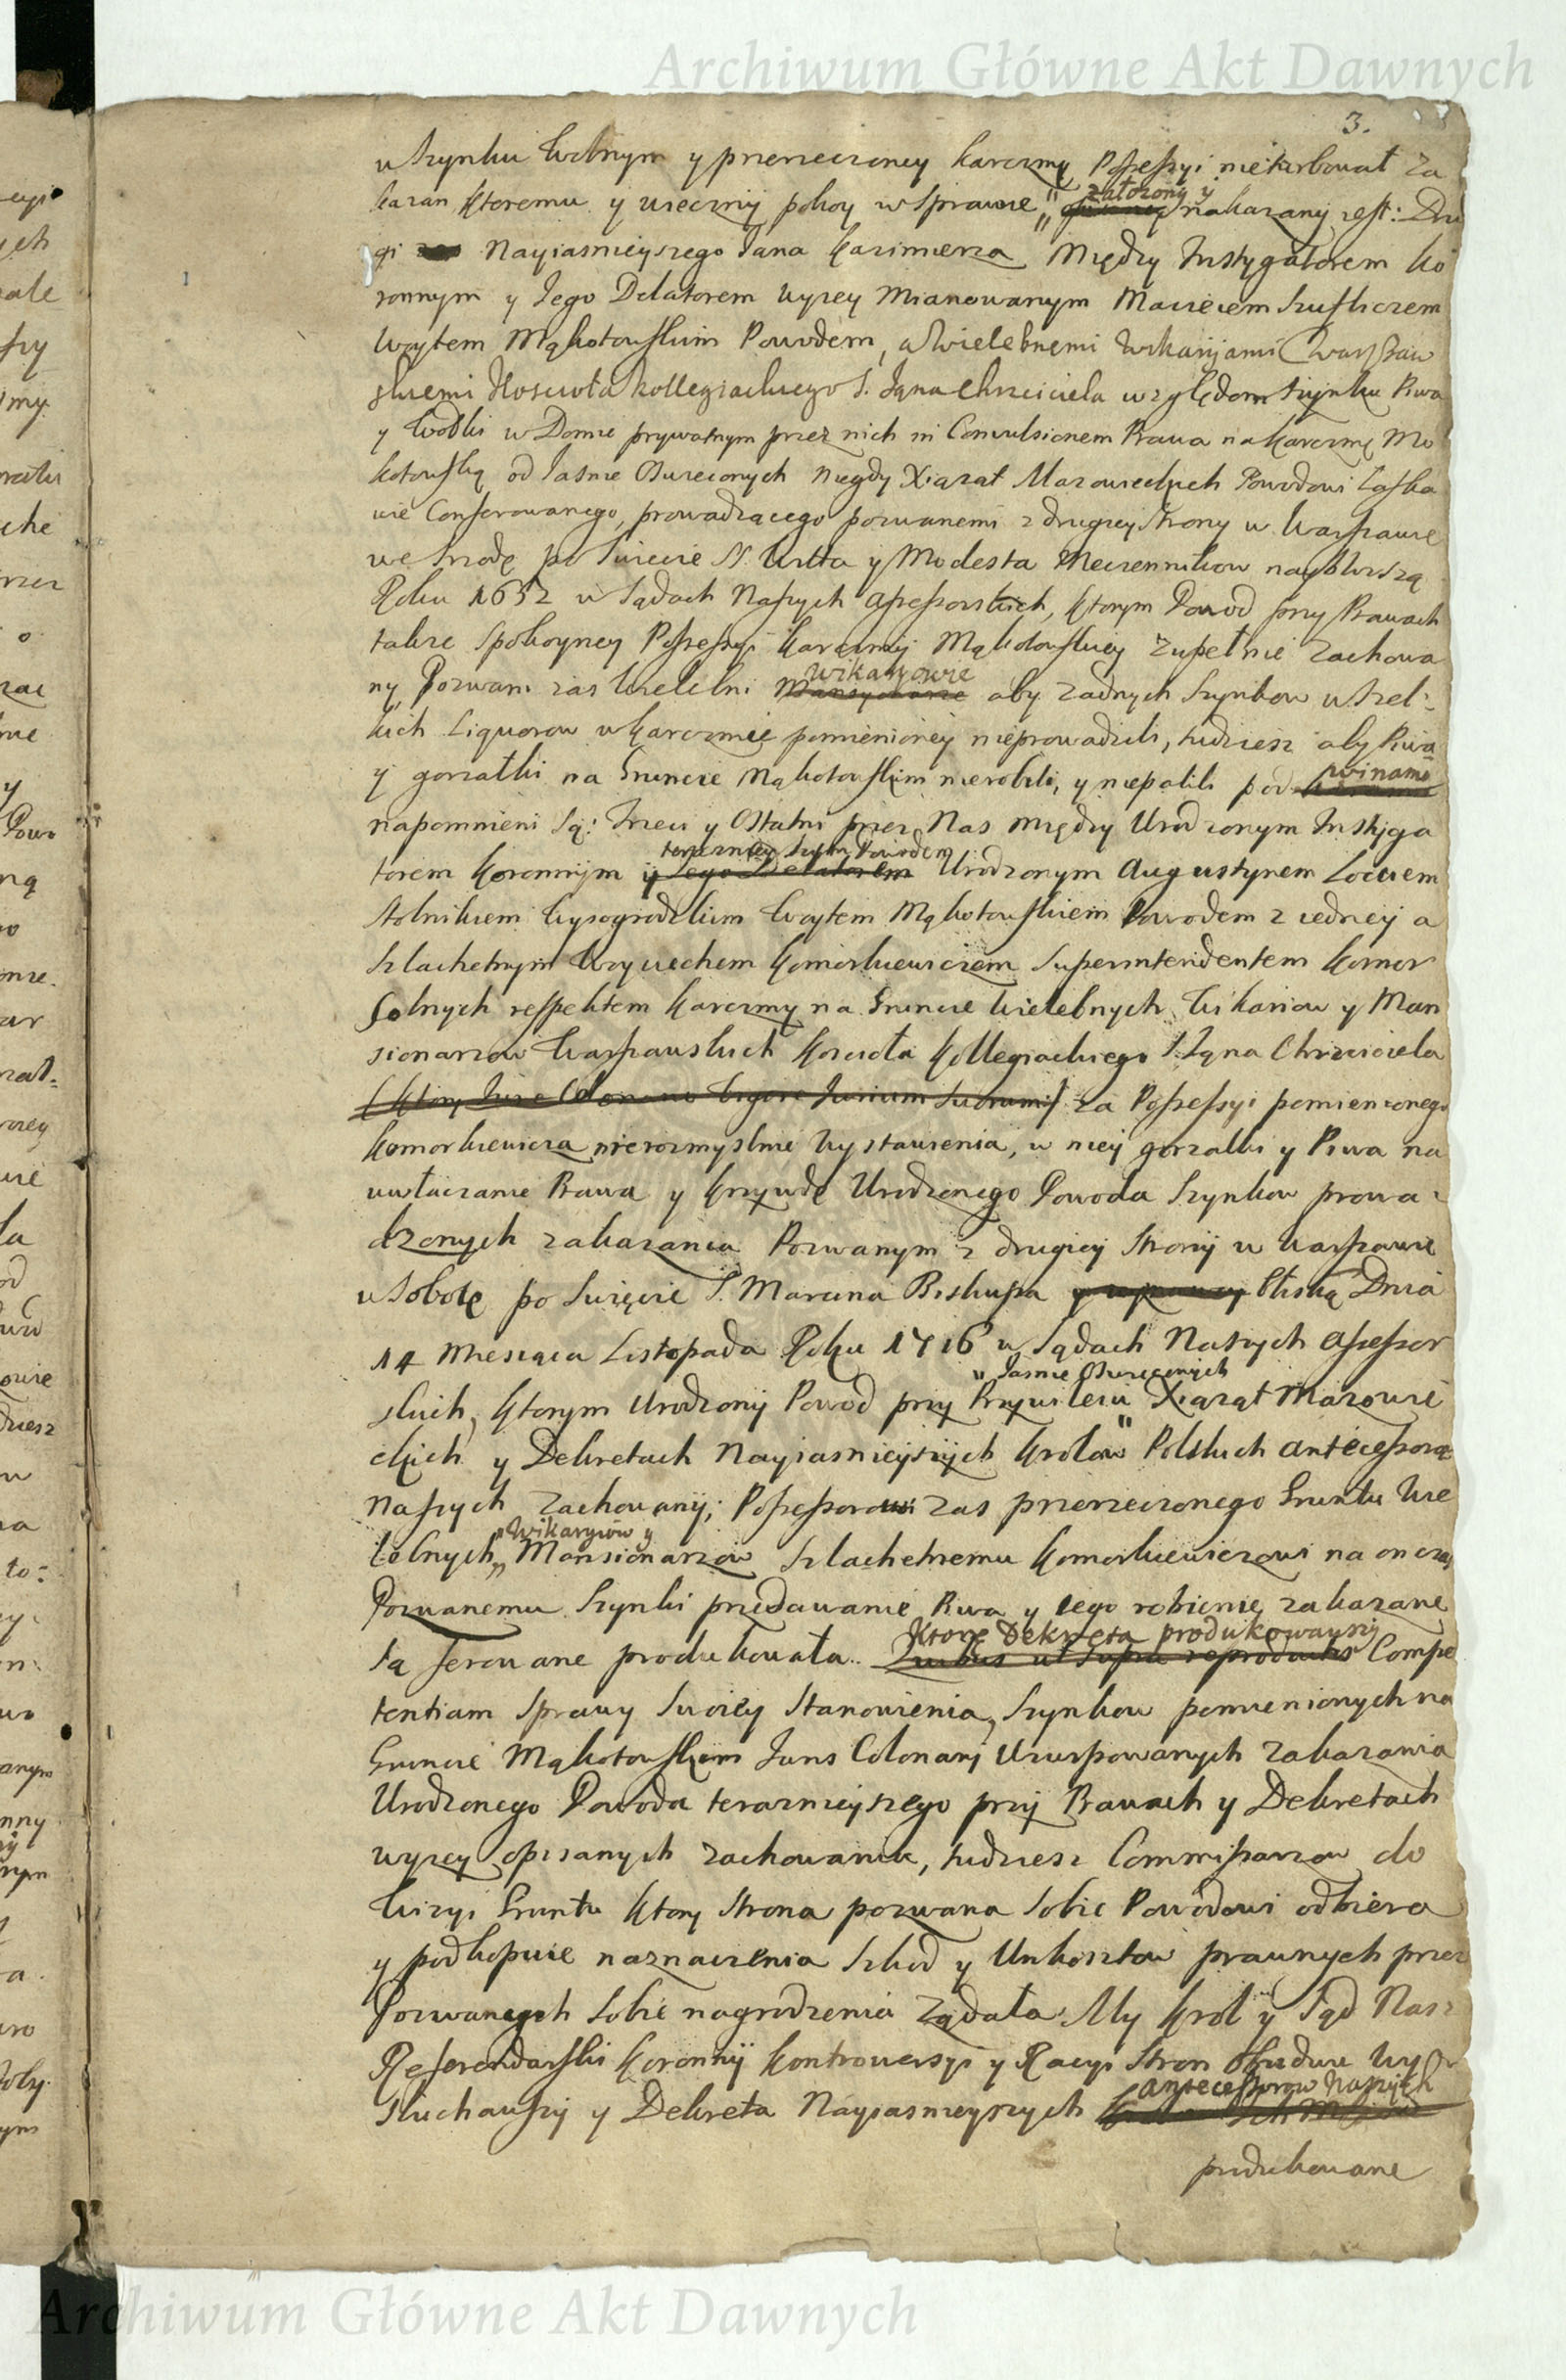 Archiwum Główne Akt Dawnych
3.
w Szynku wolnym y przerzeczoney karczmy Possessyi nieturbował za
kazan ktoremu y wieczny pokoy w Sprawie założony y nakazany jest: Dru
gi Nayiasnieyszego Jana Kazimierza Między Instygatorem Ko
ronnym y Jego Delatorem wyzey mianowanym Maciejem Szuſliczem
Woytem Mąkotowſkim Powodem, a Wielebnemi Wikaryjami Warszaw
skiemi Koscioła Kollegiackiego S. Jąna Chrzciciela względem Szynku Piwa
y Wodki w Domu prywatnym przez nich in Convulsionem Prawa na karczmę Mo
kotowſką od Jasnie Oswieconych niegdy Xiązat Mazowieckich Powodowi łaſka
wie Conferowanego, prowadzącego pozwanemi z drugiey Strony w Warszawie
we Srzodę po Swięcie SS. Wita y Modesta Męczennikow naybliższą
Roku 1652 w Sądach Naszych assessorskich, ktorym Powod przy Prawach
także Spokoyney Possessyi karczmy Mąkotowſkiey zupełnie zachowa
ny, Pozwani zas Wielebni Wikaryowie aby zadnych Szynkow wszel-
kich Liquorow w karczmie pomienioney nieprowadzili, tudziesz aby Piwa
y gorzałki na Gruncie Mąkotowſkim nierobili, y niepalili pod winami
napomnieni Są: Trzeci y Ostatni przez Nas między Urodzonym Instyga
torem Koronnym teraznieyszym Powodem Urodzonym Augustynem Locciem
Stolnikiem Wyszogrodzkim Woytem Mąkotowſkiem Powodem z iedney a
Szlachetnym Woyciechem Komorkiewiczem Superintendentem Komor
Solnych respektem karczmy na Gruncie Wielebnych Wikariow y Man
sionarzow Warszawskich Koscioła Kollegiackiego S. Jąna Chrzciciela
za Possessyi pomienionego
Komorkiewicza nierozmyslnie wystawienia, w niey gorzałki y Piwa na
uwłaczanie Prawa y krzywdę Urodzonego Powoda Szynkow prowa-
dzonych zakazania Pozwanym z drugiey Strony w Warszawie
w Sobotę po Swięcie S. Marcina Biskupa bliską Dnia
14 Miesiąca Listopada Roku 1716 w Sądach Naszych assessor
skich, ktorym Urodzony Powod przy Przywileiu Jasnie Oswieconych Xiąząt Mazowie
ckich y Dekretach Nayiasnieyszych Krolow Polskich antecessorow
Naszych zachowany; Possessorowi zas przerzeczonego Gruntu Wie
lebnych Wikaryiow y Mansionarzow Szlachetnemu Komorkiewiczowi na on czas
Pozwanemu Szynki przedawanie Piwa y iego robienie zakazane
Są ferowane produkowała. Ktore Dekreta produkowawszy Compe
tentiam Sprawy Swoiey Stanowienia, Szynkow pomienionych na
Gruncie Mąkotowſkim Juris Colonarij Uzurpowanych zakazania
Urodzonego Powoda teraznieyszego przy Prawach y Dekretach
wyzey opisanych zachowania, tudziesz Commissarzow do
Wizyi Gruntu ktory Strona pozwana Sobie Powodowi odbiera
y podkopuie naznaczenia Szkod y Unkosztow prawnych przez
Pozwanych Sobie nagrodzenia Żądała My Krol y Sąd Nasz
Referendarſki Koronny kontrowersyi y Racyi Stron obudwu Wy
Słuchawszy y Dekreta Nayiasnieyszych antecessorow Naszych
produkowane
Archiwum Główne Akt Dawnych